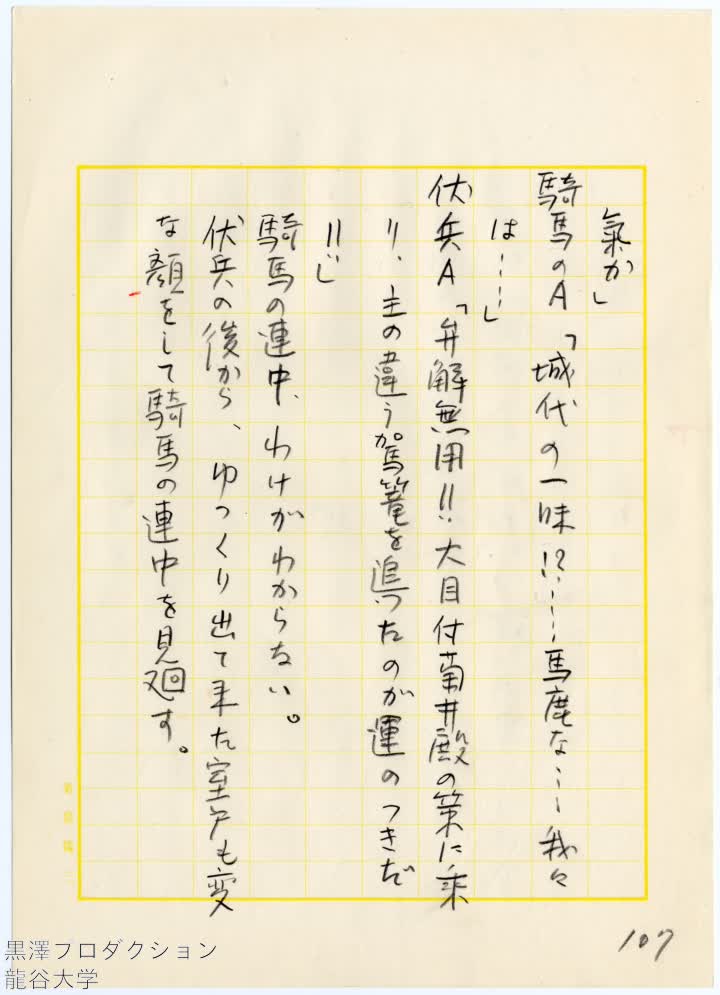 氣か」
騎馬のA「城代の一味!?……馬鹿な……我々
は……」
伏兵A「弁解無用!!大目付菊井殿の策に乗
り、主の違う駕篭を追ったのが運のつきだ
!!」
騎馬の連中、わけがわからない。
伏兵の後から、ゆっくり出て来た室戸も変
な顔をして騎馬の連中を見廻す。
107
黒澤プロダクション
龍谷大学